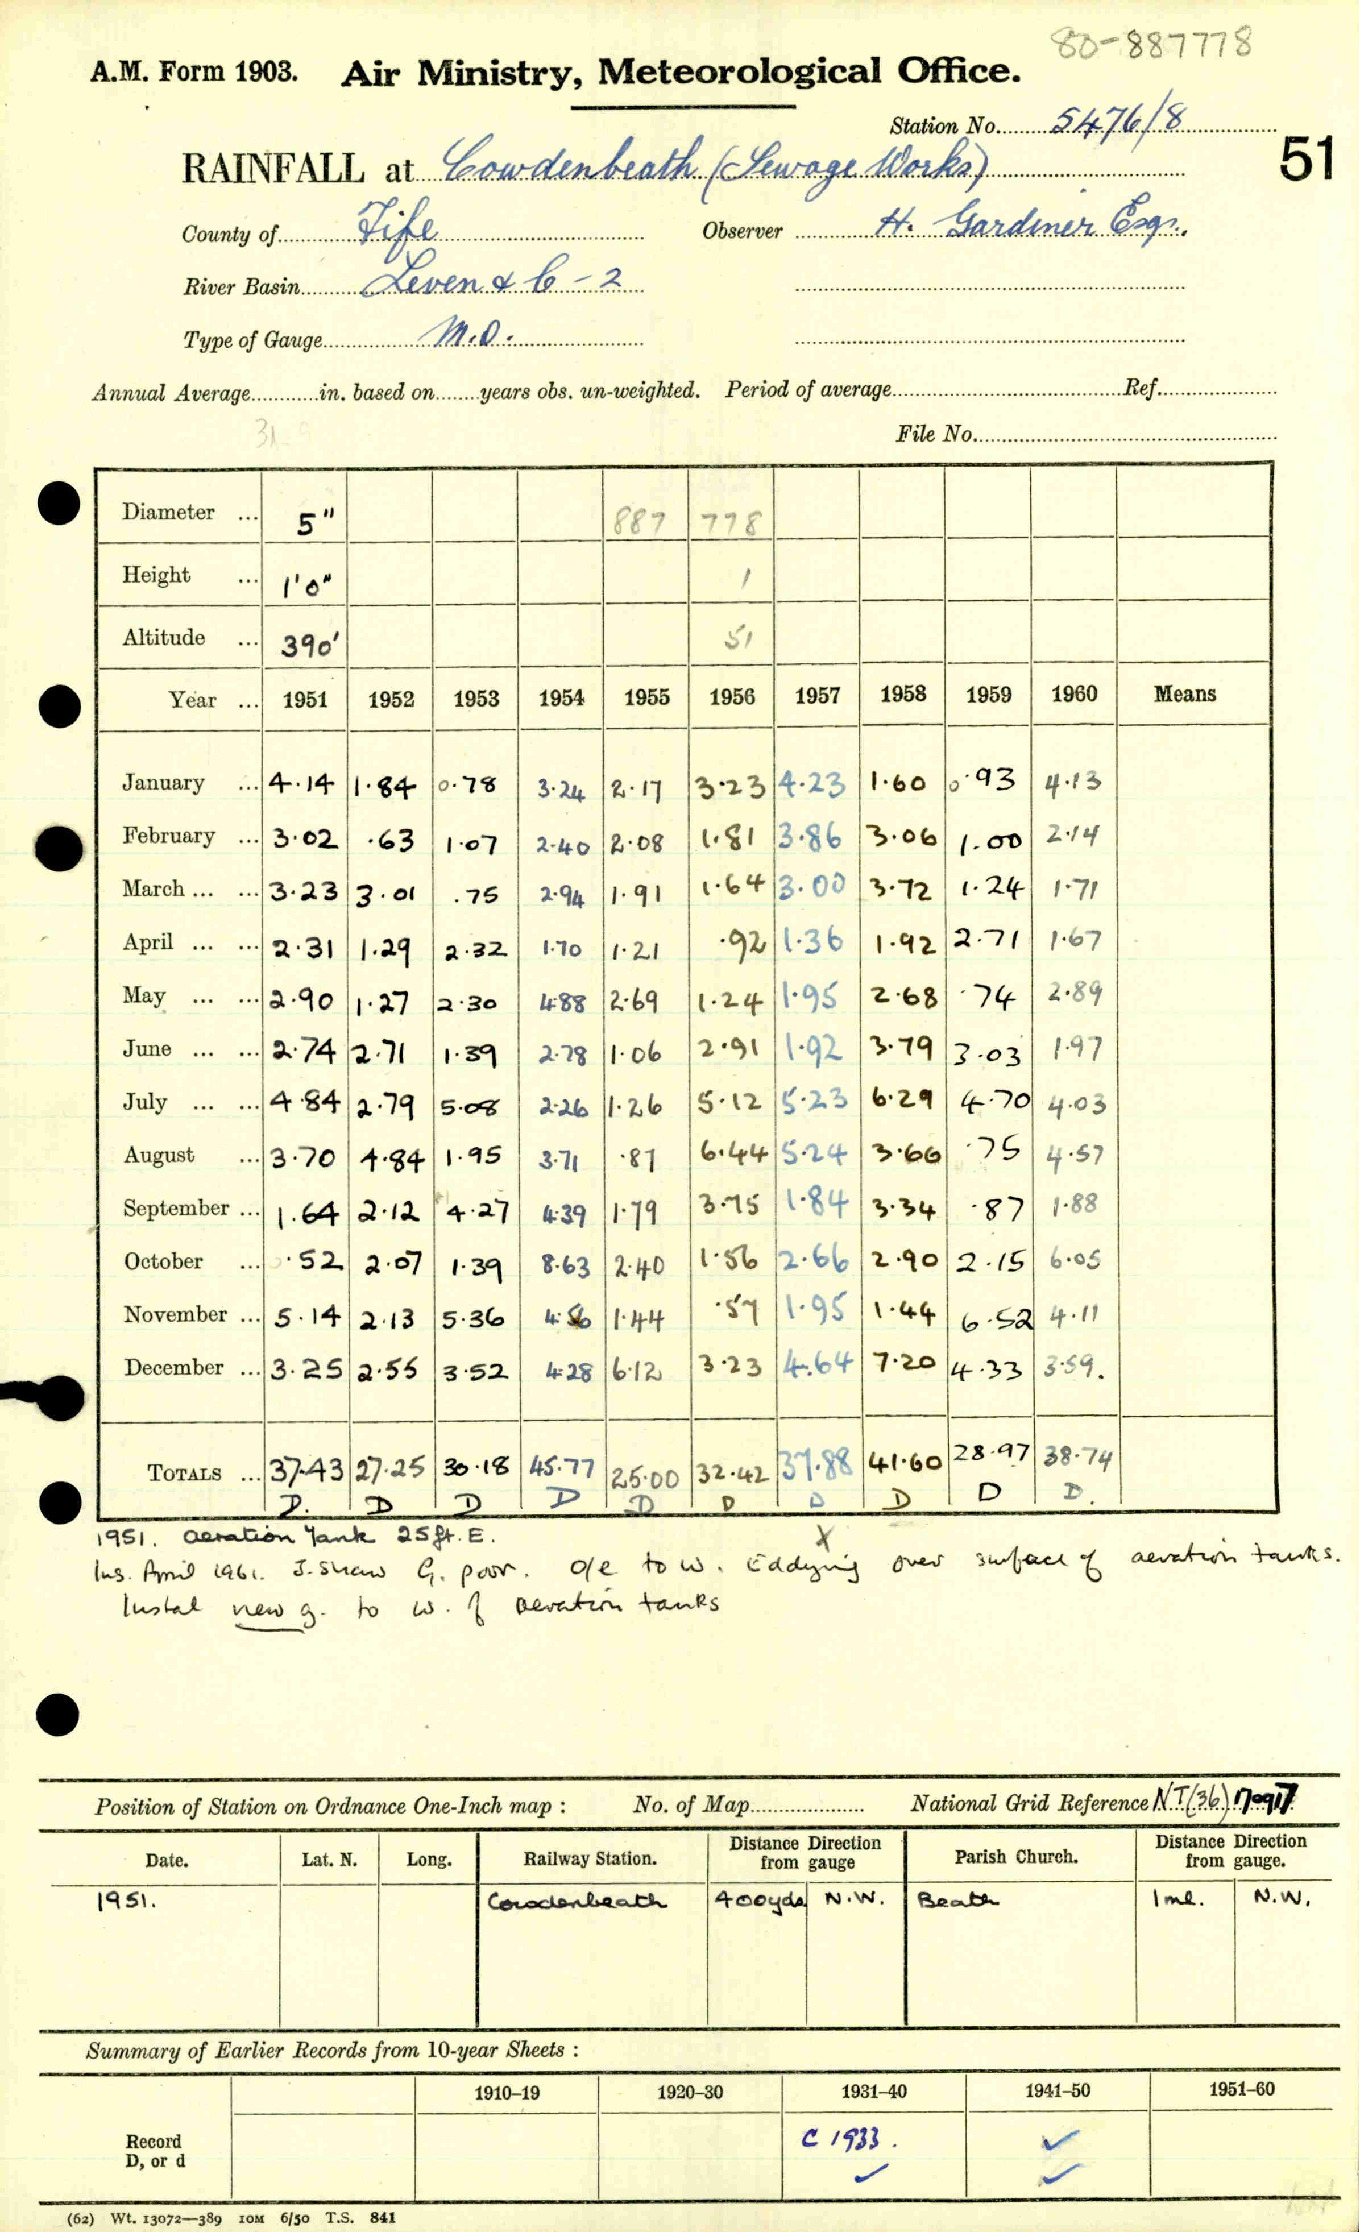 80-887778
A.M. Form 1903. Air Ministry, Meteorological Office.
Station No. 5476/8
51
RAINFALL at Cowdenbeath (Sewage Works)
County of Fife Observer H. Gardiner Esq.
River Basin Leven & C - 2
Type of Gauge M.O.
Annual Average in. based on years obs. un-weighted. Period of average Ref.
File No.
Diameter ... 5" 887 778
Height ... 1'0" 1
Altitude ... 390' 51
Year ... 1951 1952 1953 1954 1955 1956 1957 1958 1959 1960 Means
January ... 4.14 1.84 0.78 3.24 2.17 3.23 4.23 1.60 0.93 4.13
February ... 3.02 .63 1.07 2.40 2.08 1.81 3.86 3.06 1.00 2.14
March ... ... 3.23 3.01 .75 2.94 1.91 1.64 3.00 3.72 1.24 1.71
April ... ... 2.31 1.29 2.32 1.70 1.21 .92 1.36 1.92 2.71 1.67
May ... ... 2.90 1.27 2.30 4.88 2.69 1.24 1.95 2.68 .74 2.89
June ... ... 2.74 2.71 1.39 2.78 1.06 2.91 1.92 3.79 3.03 1.97
July ... ... 4.84 2.79 5.08 2.26 1.26 5.12 5.23 6.29 4.70 4.03
August ... 3.70 4.84 1.95 3.71 .87 6.44 5.24 3.66 .75 4.57
September ... 1.64 2.12 4.27 4.39 1.79 3.75 1.84 3.34 .87 1.88
October ... .52 2.07 1.39 8.63 2.40 1.56 2.66 2.90 2.15 6.05
November ... 5.14 2.13 5.36 4.56 1.44 .57 1.95 1.44 6.52 4.11
December ... 3.25 2.55 3.52 4.28 6.12 3.23 4.64 7.20 4.33 3.59.
TOTALS ... 37.43 27.25 30.18 45.77 25.00 32.42 37.88 41.60 28.97 38.74
D. D D D D D D D D D.
1951. Aeration Tank 25ft. E.
Ins. April 1961. J. Shaw G. poor. o/e to W. Eddying over surface of aeration tanks.
Instal new g. to W. of aeration tanks
Position of Station on Ordnance One-Inch map : No. of Map National Grid Reference NT(36)170917
Date. Lat. N. Long. Railway Station. Distance Direction from gauge Parish Church. Distance Direction from gauge.
1951. Cowdenbeath 400yds N.W. Beath 1ml. N.W.
Summary of Earlier Records from 10-year Sheets :
1910–19 1920–30 1931–40 1941–50 1951–60
Record D, or d C 1933. ✓ ✓ ✓
(62) Wt. 13072—389 10M 6/50 T.S. 841